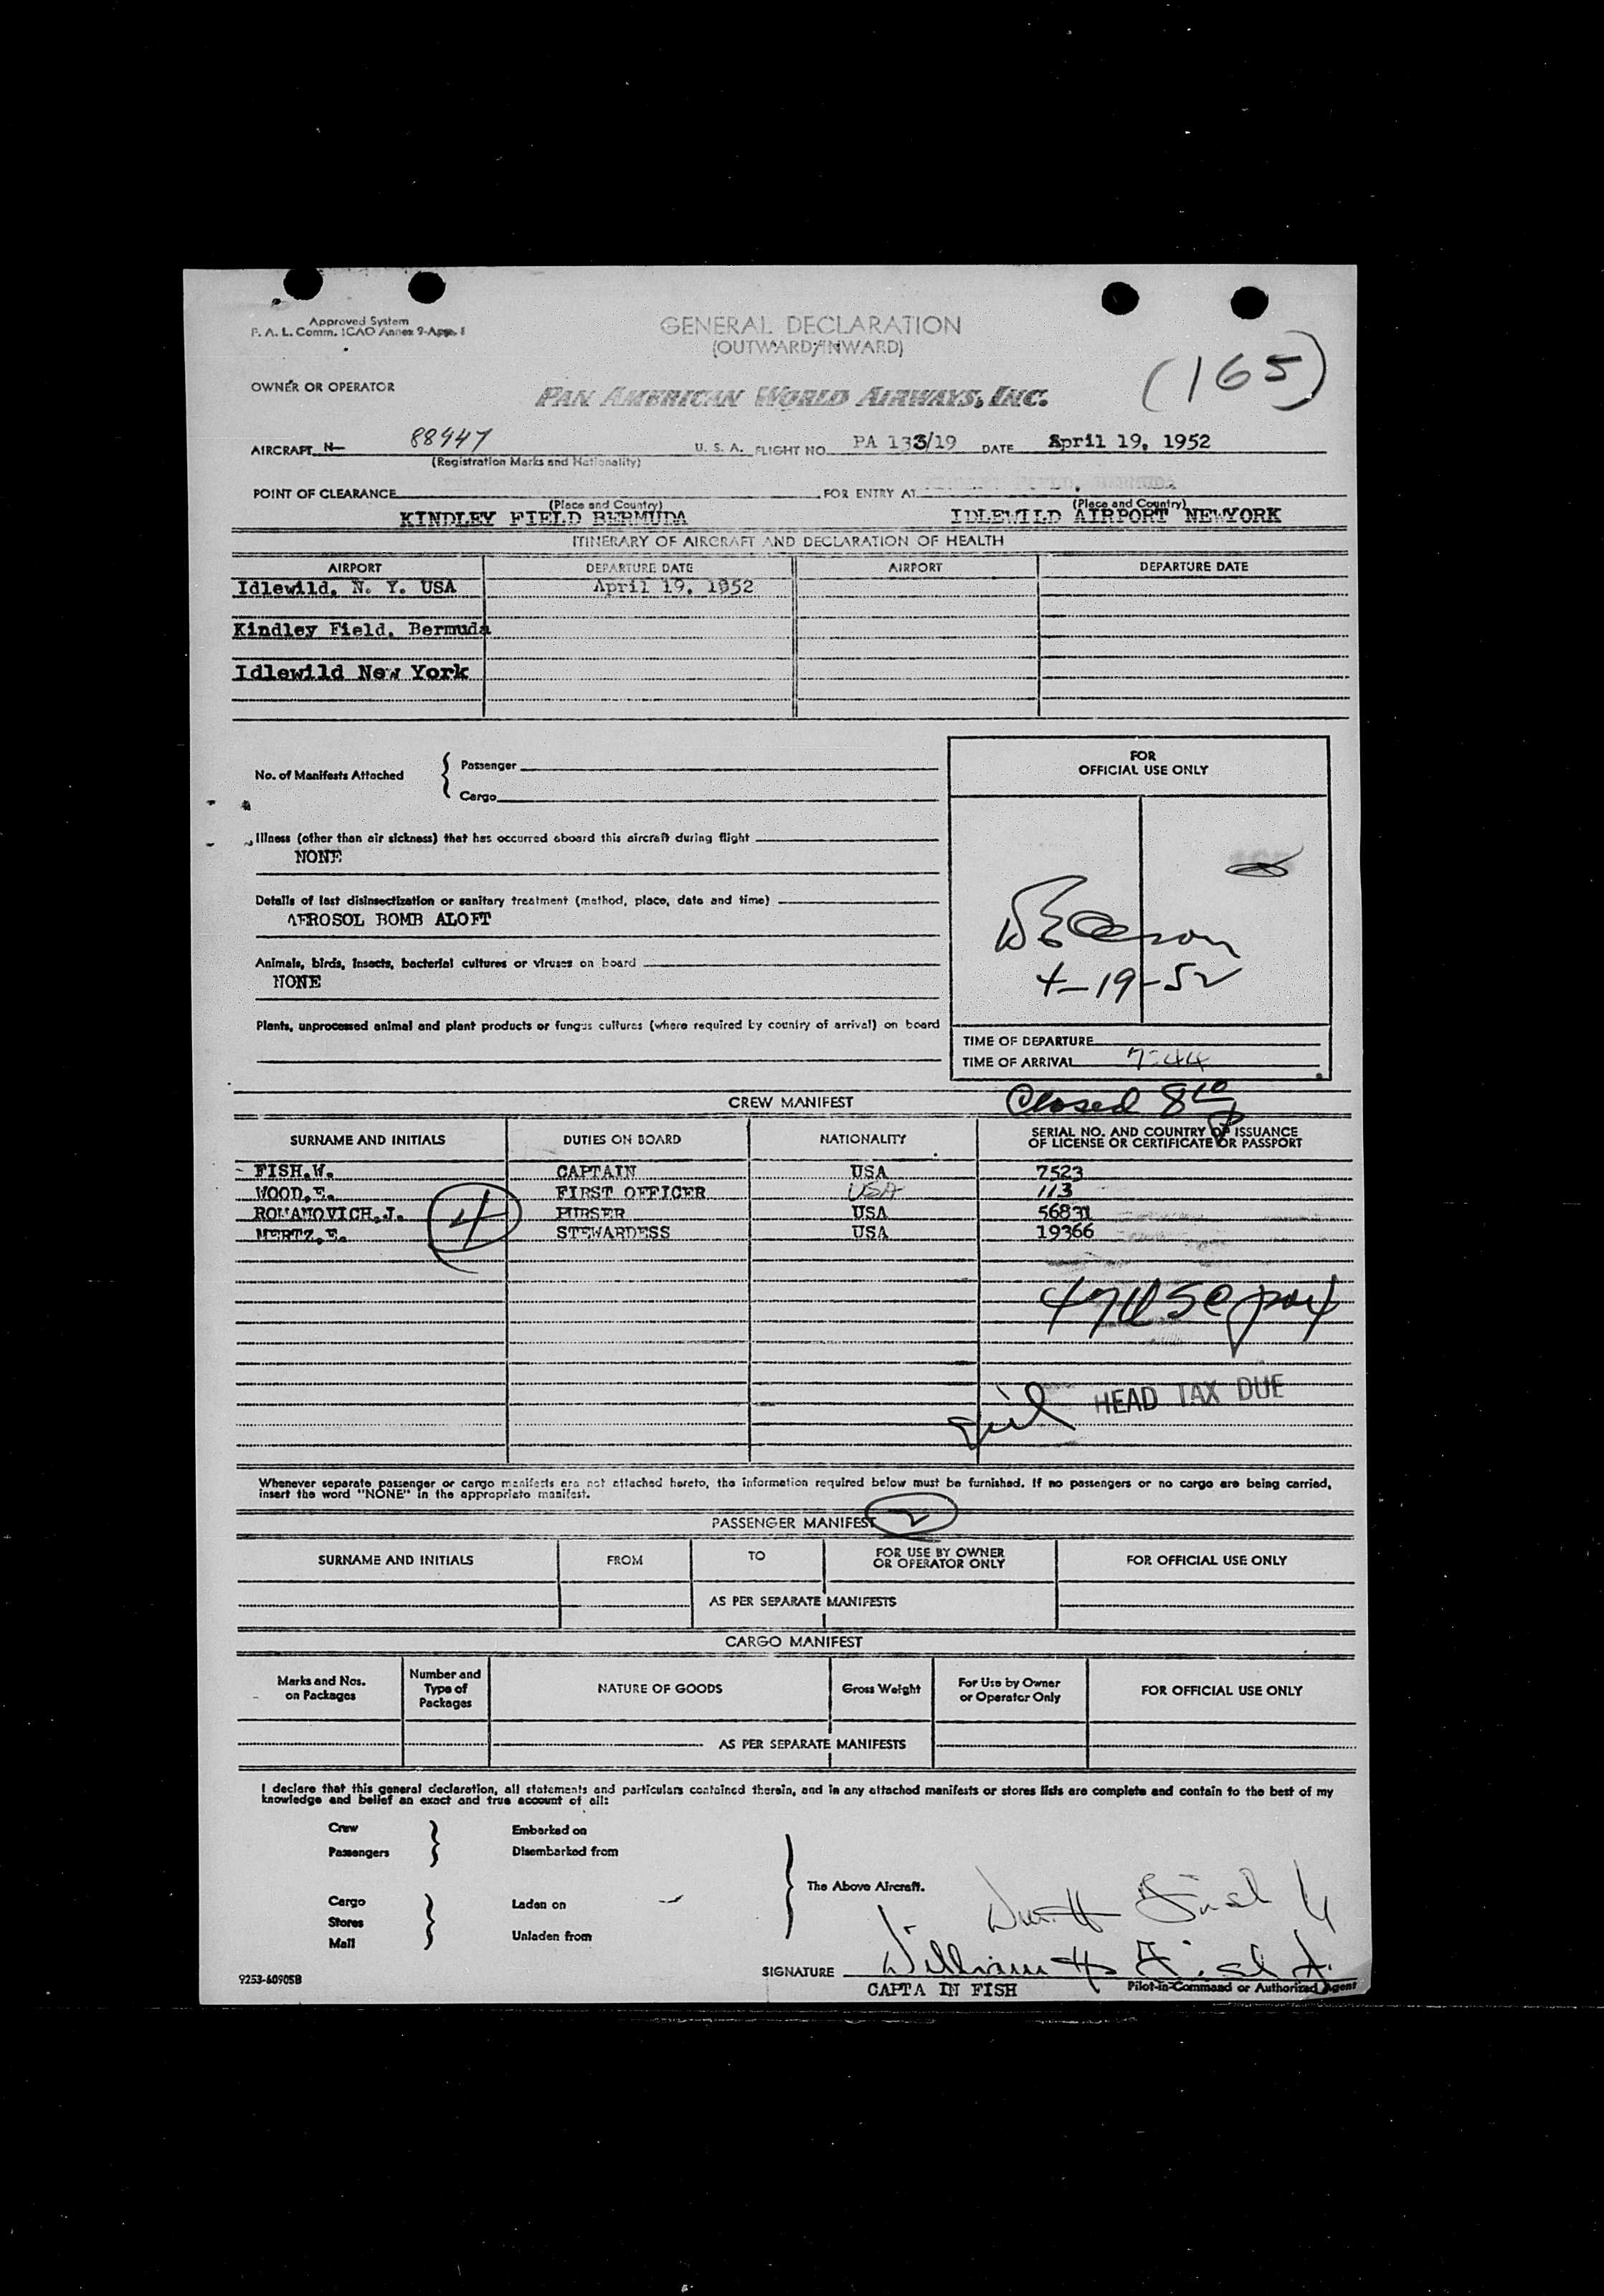 Approved System
P. A. L. Comm. ICAO Annex 9-App. 1
GENERAL DECLARATION
(OUTWARD/INWARD)
(165)
OWNER OR OPERATOR
PAN AMERICAN WORLD AIRWAYS, INC.
AIRCRAFT N- 88947 U. S. A. FLIGHT NO. PA 133/19 DATE April 19, 1952
(Registration Marks and Nationality)
POINT OF CLEARANCE FOR ENTRY AT
(Place and Country) (Place and Country)
KINDLEY FIELD BERMUDA IDLEWILD AIRPORT NEWYORK
ITINERARY OF AIRCRAFT AND DECLARATION OF HEALTH
AIRPORT DEPARTURE DATE AIRPORT DEPARTURE DATE
Idlewild, N. Y. USA April 19, 1952
Kindley Field, Bermuda
Idlewild New York
No. of Manifests Attached { Passenger
Cargo
FOR
OFFICIAL USE ONLY
Illness (other than air sickness) that has occurred aboard this aircraft during flight
NONE
Details of last disinsectization or sanitary treatment (method, place, date and time)
AEROSOL BOMB ALOFT
Animals, birds, insects, bacterial cultures or viruses on board
NONE
4-19-52
Plants, unprocessed animal and plant products or fungus cultures (where required by country of arrival) on board
TIME OF DEPARTURE
TIME OF ARRIVAL 7:44
Closed 8
CREW MANIFEST
SURNAME AND INITIALS DUTIES ON BOARD NATIONALITY SERIAL NO. AND COUNTRY OF ISSUANCE
OF LICENSE OR CERTIFICATE OR PASSPORT
FISH,W. CAPTAIN USA 7523
WOOD,E. FIRST OFFICER USA 113
ROMANOVICH,J. PURSER USA 56831
MERTZ,E. STEWARDESS USA 19366
4
HEAD TAX DUE
Whenever separate passenger or cargo manifests are not attached hereto, the information required below must be furnished. If no passengers or no cargo are being carried,
insert the word "NONE" in the appropriate manifest.
PASSENGER MANIFEST 2
SURNAME AND INITIALS FROM TO FOR USE BY OWNER
OR OPERATOR ONLY FOR OFFICIAL USE ONLY
AS PER SEPARATE MANIFESTS
CARGO MANIFEST
Marks and Nos.
on Packages Number and
Type of
Packages NATURE OF GOODS Gross Weight For Use by Owner
or Operator Only FOR OFFICIAL USE ONLY
AS PER SEPARATE MANIFESTS
I declare that this general declaration, all statements and particulars contained therein, and in any attached manifests or stores lists are complete and contain to the best of my
knowledge and belief an exact and true account of all:
Crew Embarked on
Passengers Disembarked from
The Above Aircraft.
Cargo Laden on
Stores
Mail Unladen from
SIGNATURE William H Fish Jr.
9253-60905B
CAPTA IN FISH Pilot-in-Command or Authorized Agent